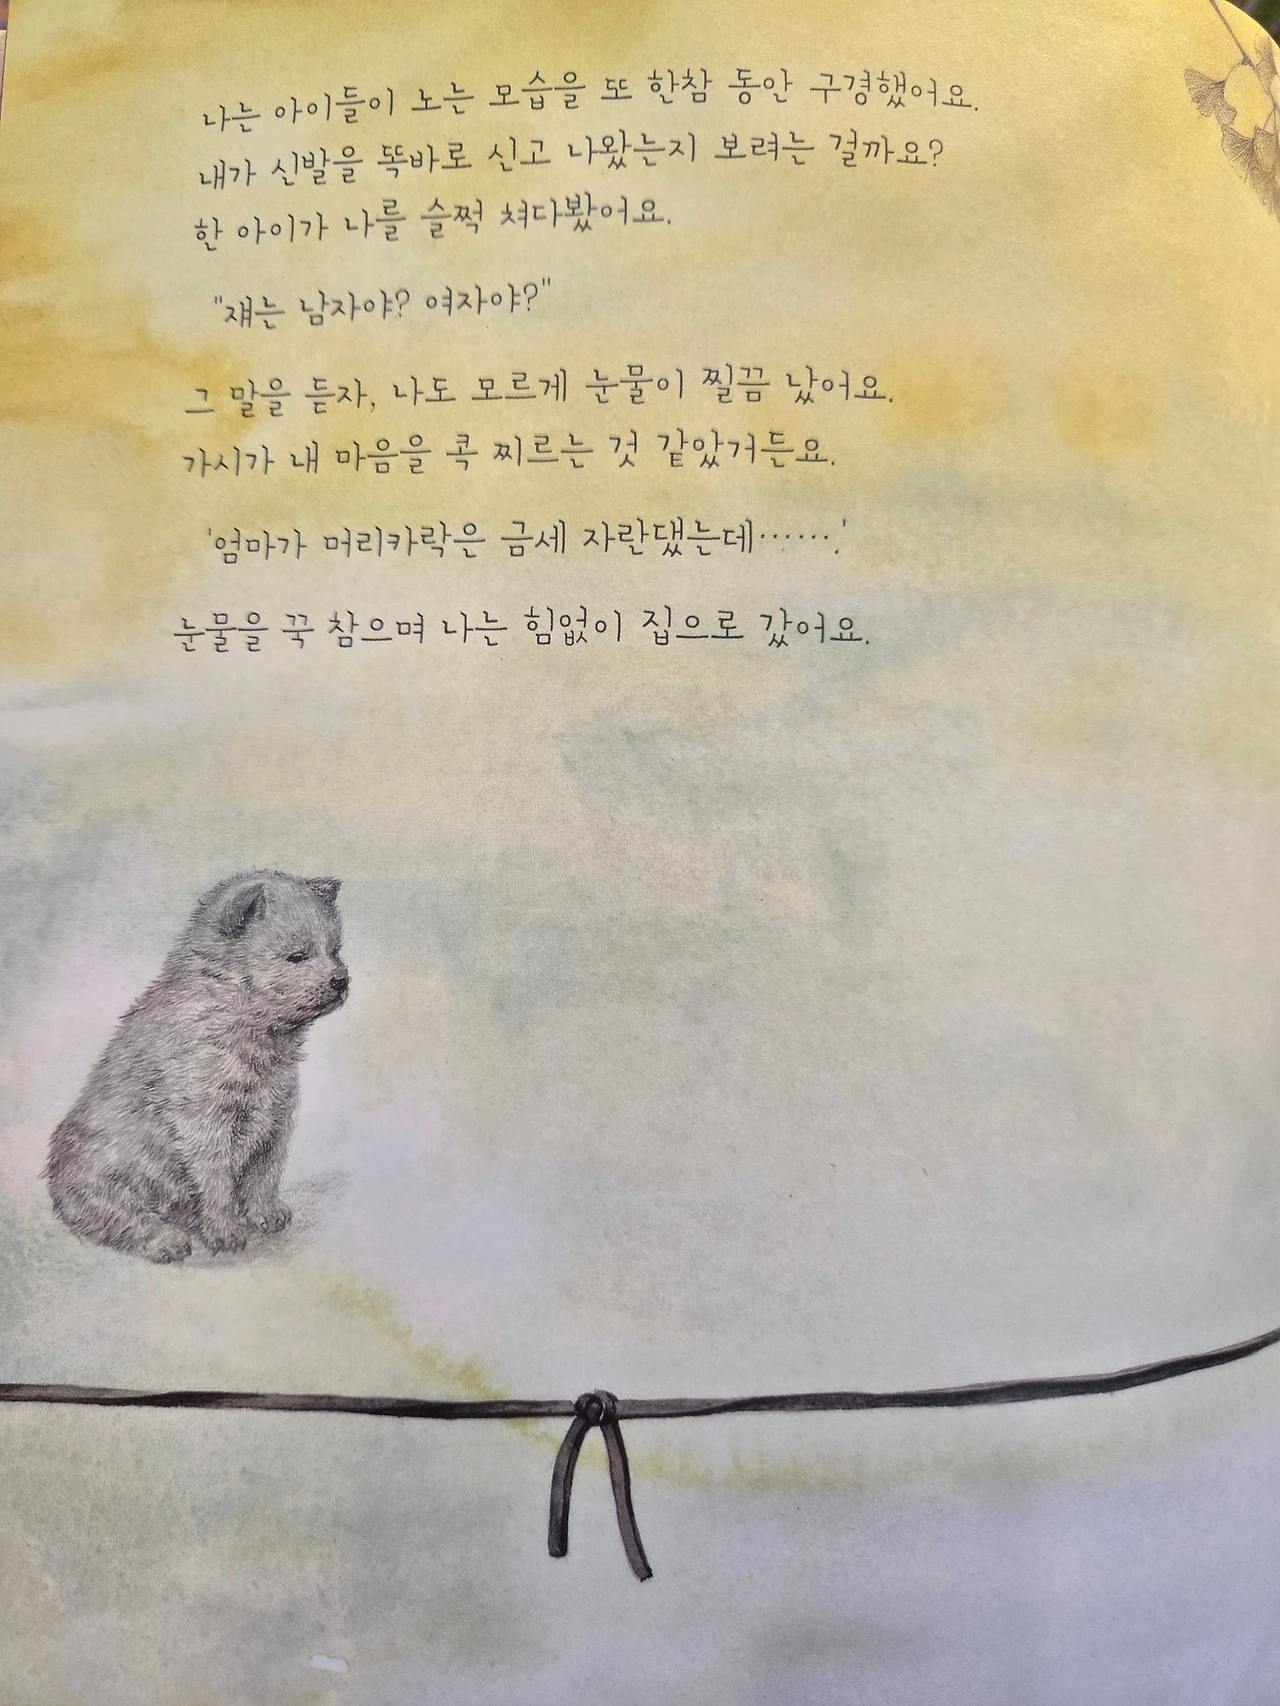 나는 아이들이 노는 모습을 또 한참 동안 구경했어요.
내가 신발을 똑바로 신고 나왔는지 보려는 걸까요?
한 아이가 나를 슬쩍 쳐다봤어요.
"쟤는 남자야? 여자야?"
그 말을 듣자, 나도 모르게 눈물이 찔끔 났어요.
가시가 내 마음을 콕 찌르는 것 같았거든요.
'엄마가 머리카락은 금세 자란댔는데…….'
눈물을 꾹 참으며 나는 힘없이 집으로 갔어요.